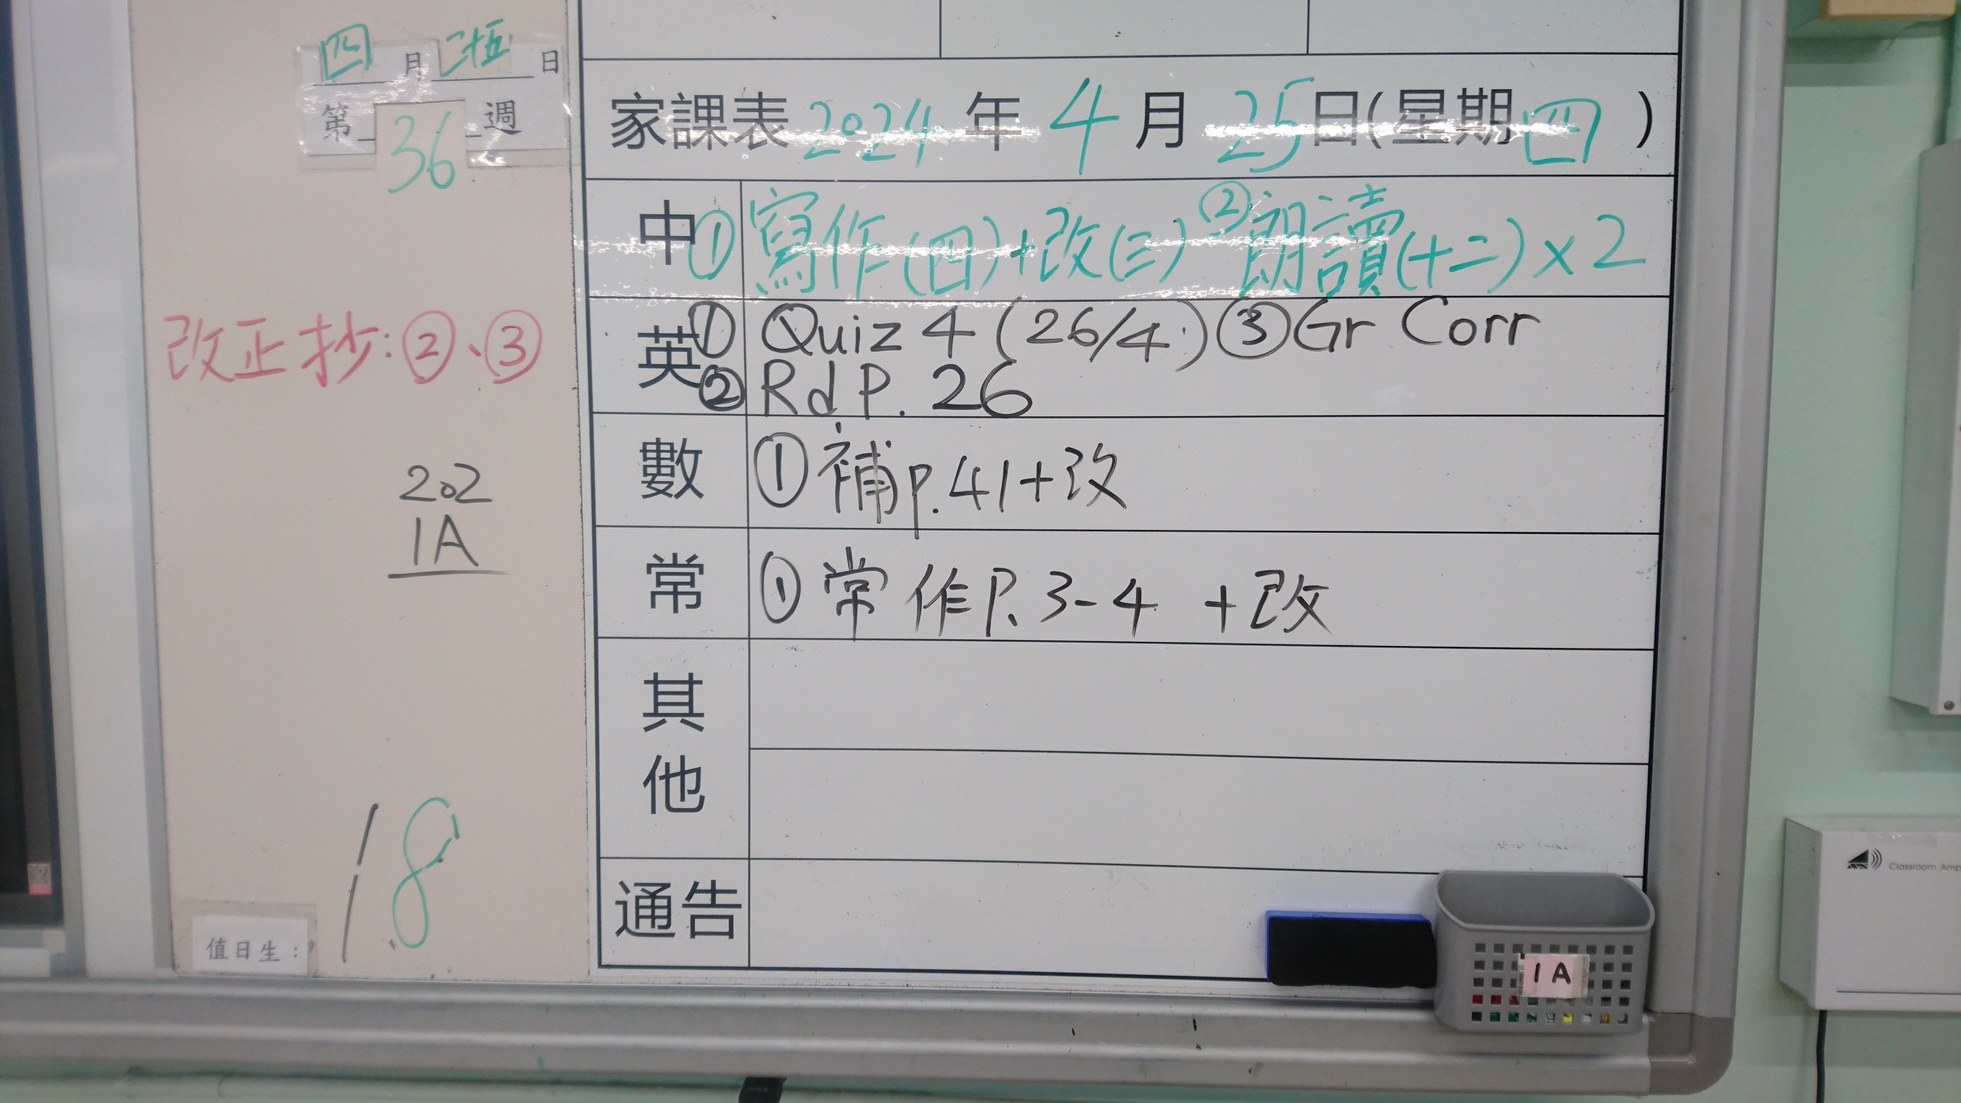 四月二十五日
第36週
改正抄:②、③
202
1A
值日生:
18
家課表2024年4月25日(星期四)
中①寫作(四)+改(三)②朗讀(十二)×2
英①Quiz 4 (26/4)③Gr Corr
②Rd P. 26
數①補p.41+改
常①常作P.3-4 +改
其他
通告
1A
Classroom Amp